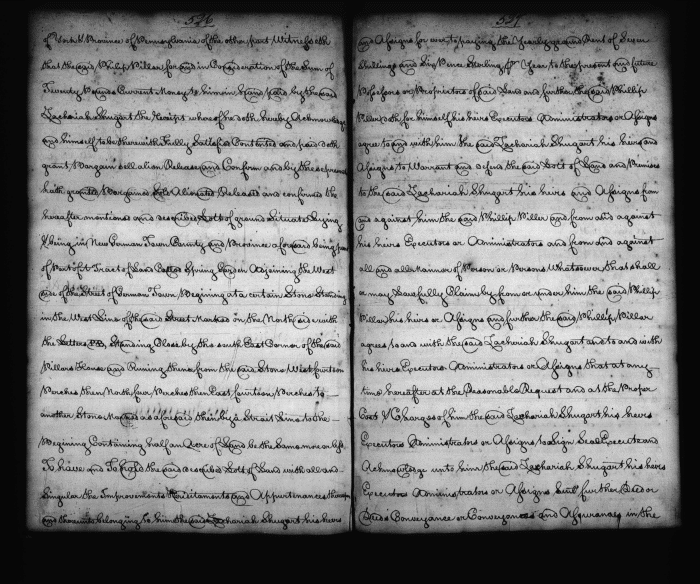 526
of York & Province of Pennsylvania of the other part Witnesseth
that the said Philip Viller for and in Consideration of the Sum of
Twenty Pounds Current Money to him in hand paid by the said
Zachariah Shugart the Receipt whereof he doth hereby Acknowledge
and himself to be therewith Fully Satisfied Contented and paid doth
grant Bargain sell alien Release and Confirm and by these presents
hath granted Bargained Sold Alienated Released and confirmed the
hereafter mentioned and described Lott of ground Situate Lying
& being in New German Town County and Province aforesaid being part
of Part of Tract of Land Called Spring Garden Adjoining the West
side of the Street of German Town Begining at a certain Stone Standing
in the West Line of the said Street Marked on the North side with
the Letters PB, Standing Close by the South East Corner of the said
Villers House and Runing thence from the said Stone West fourteen
Perches then North four Perches then East fourteen Perches to
another Stone Marked as aforesaid then by a Strait Line to the
Begining Containing half an Acre of Land be the same more or less
To have and To hold the said described Lott of Land with all and
Singular the Improvements Hereditaments and Appurtenances thereon
and thereunto belonging to him the said Zachariah Shugart his heirs
527
and Assigns for ever to paying the Yearly ground Rent of Seven
Shillings and Six Pence Sterling per Year to the present and future
Possessors or Proprietors of said Land and further the said Phillip
Viller doth for himself his heirs Executors Administrators or Assigns
agree to and with him the said Zachariah Shugart his heirs and
Assigns to Warrant and defend the said Lott of Land and Premises
to the said Zachariah Shugart his heirs and Assigns from
and against him the said Phillip Viller and from and against
his heirs Executors or Administrators and from and against
all and all Mannor of Person or Persons Whatsoever that shall
or may Lawfully Claim by from or under him the said Phillip
Viller his heirs or Assigns and further the said Phillip Viller
agrees to and with the said Zachariah Shugart and to and with
his heirs Executors Administrators or Assigns that at any
time hereafter at the Reasonable Request and at the Proper
Cost & Charges of him the said Zachariah Shugart his heirs
Executors Administrators or Assigns to Sign Seal Execute and
Acknowledge unto him the said Zachariah Shugart his heirs
Executors Administrators or Assigns Such further Deed or
Deeds Conveyance or Conveyances and Assurances in the